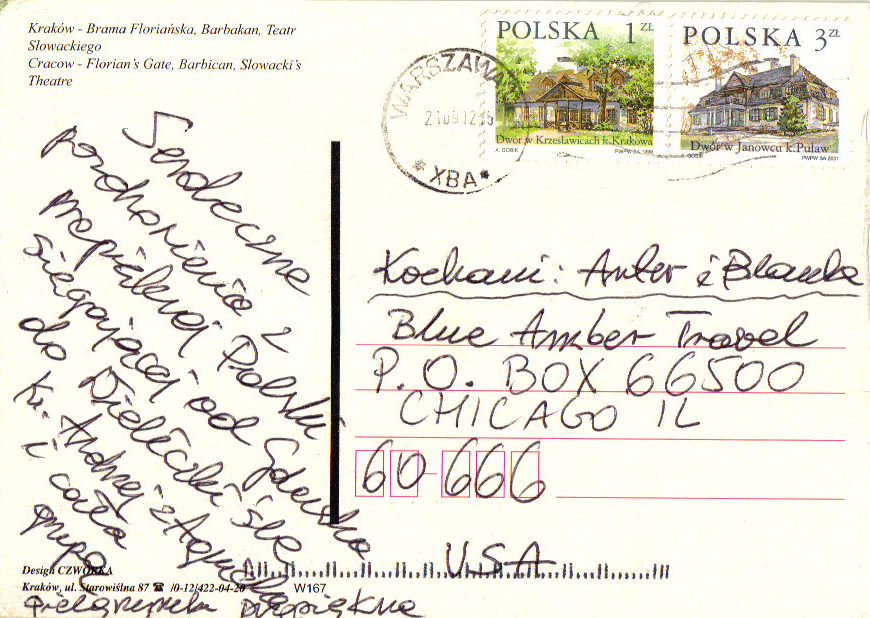 Kraków - Brama Floriańska, Barbakan, Teatr
Słowackiego
Cracow - Florian's Gate, Barbican, Slowacki's
Theatre
WARSZAWA
XBA
POLSKA 1 ZŁ
Dwór w Krzesławicach k.Krakowa
A. GOSIK PWPW SA, 1998
POLSKA 3 ZŁ
Dwór w Janowcu k.Puław
A. GOSIK PWPW SA 2001
Serdeczne
pozdrowienia z
przepięknej Polski
sięgającej od Gdańska
do Wieliczki śle
Ks. Andrzej z
i cała
grupa
Pielgrzymka przepiękna
Kochani: Anter i Blanka
Blue Amber Travel
P.O. BOX 66500
CHICAGO IL
60-666
USA
Design CZWÓRKA
Kraków, ul. Starowiślna 87 ☎ /0-12/422-04-20
W167